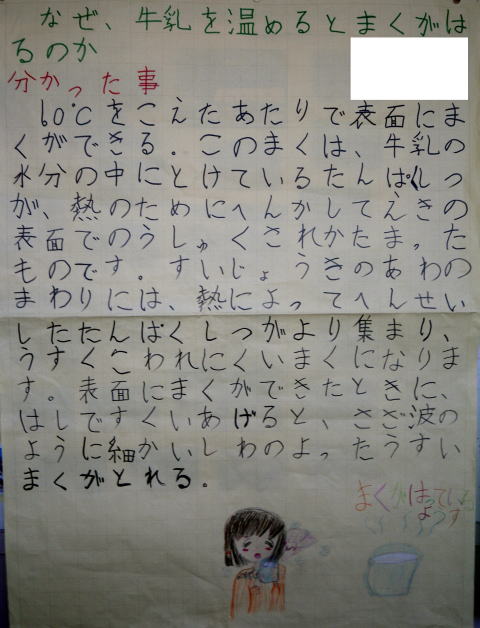 なぜ、牛乳を温めるとまくがは
るのか
分かった事
60℃をこえたあたりで表面にま
くができる。このまくは、牛乳の
水分の中にとけているたんぱくしつ
が、熱のためにへんかしてえきの
表面でのうしゅくされかたまった
ものです。すいじょうきのあわの
まわりには、熱によってへんせい
したたんぱくしつがより集まり、
うすくこわれにくいまくになりま
す。表面にまくができたときに、
はしですくいあげると、さざ波の
ように細かいしわのよったうすい
まくがとれる。
まくがはっている
ようす